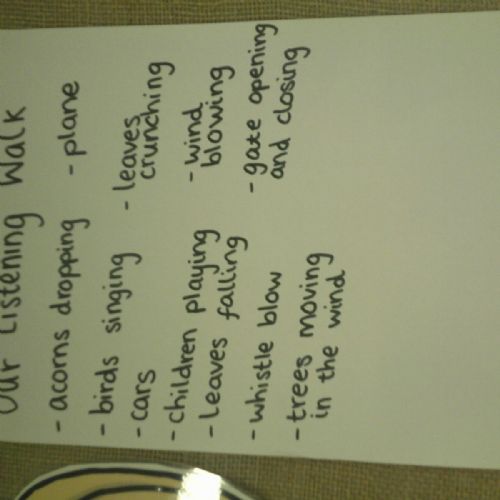 Our Listening Walk
- acorns dropping
- birds singing
- cars
- children playing
- leaves falling
- whistle blow
- trees moving
in the wind
- plane
- leaves
crunching
- wind
blowing
- gate opening
and closing